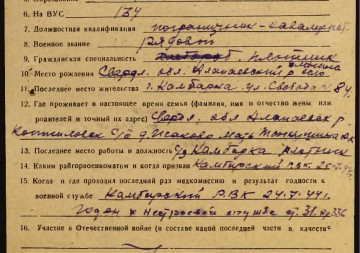 6. На ВУС 134
7. Должностная квалификация пограничник-кавалерист
8. Военное звание рядовой
9. Гражданская специальность плотник
10. Место рождения Свердл. обл. Алапаевский р.
11. Последнее место жительства г. Камбарка ул. Свободы 84
12. Где проживает в настоящее время семья (фамилия, имя и отчество жены или
родителей и точный их адрес) Свердл. обл. Алапаевск. р.
с/с д. мать
13. Последнее место работы и должность Камбарка плотник
14. Каким райгорвоенкоматом и когда призван Камбарский РВК
15. Когда и где проходил последний раз медкомиссию и результат годности к
военной службе Камбарский РВК 24.7.44 г.
годен к нестроевой службе ст. 31 пр. 336
16. Участие в Отечественной войне (в составе какой последней части в качеств